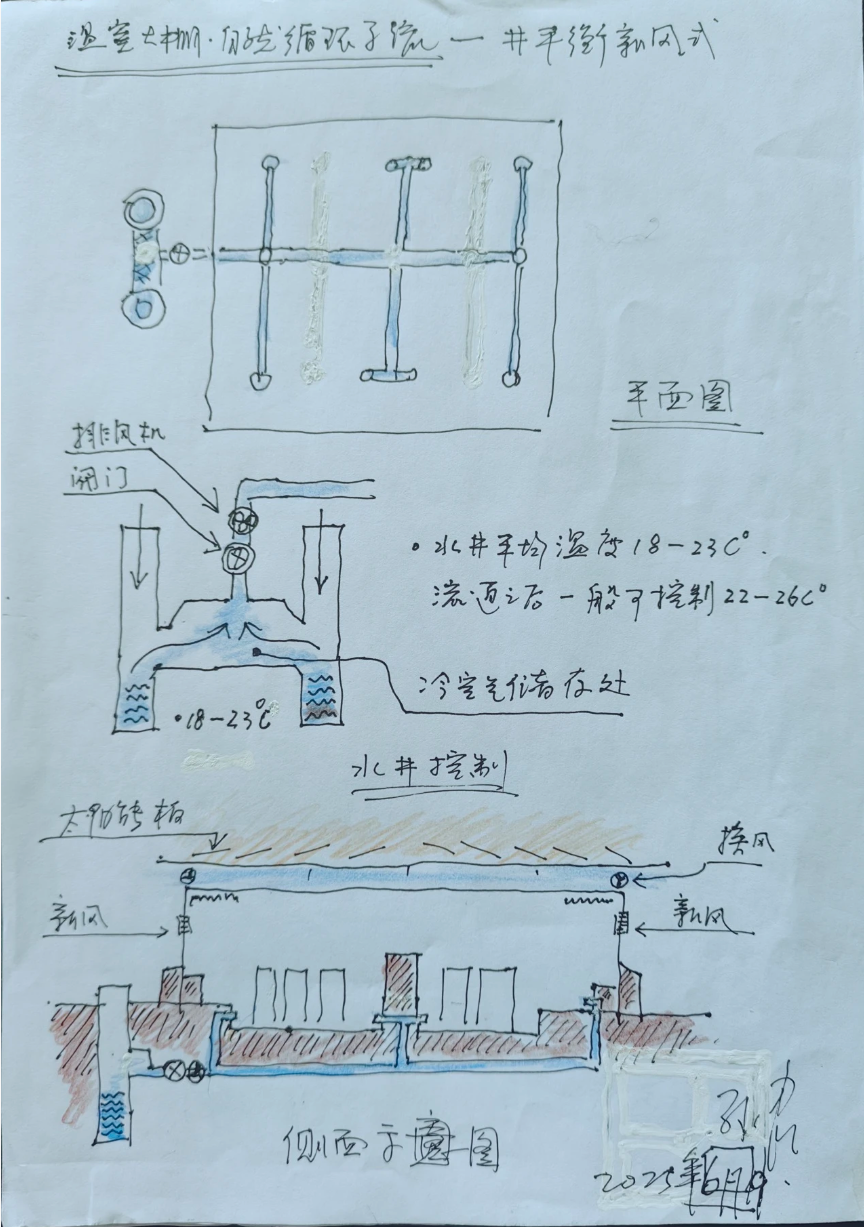 温室大棚·自然循环予流 — 井平衡新风式
平面图
排风机
闸门
·水井平均温度18-23C°.
流通之后一般可控制22-26C°
冷空气储存处
·18-23°C
水井控制
太阳能板
换风
新风
新风
侧面示意图
2025年6月9.